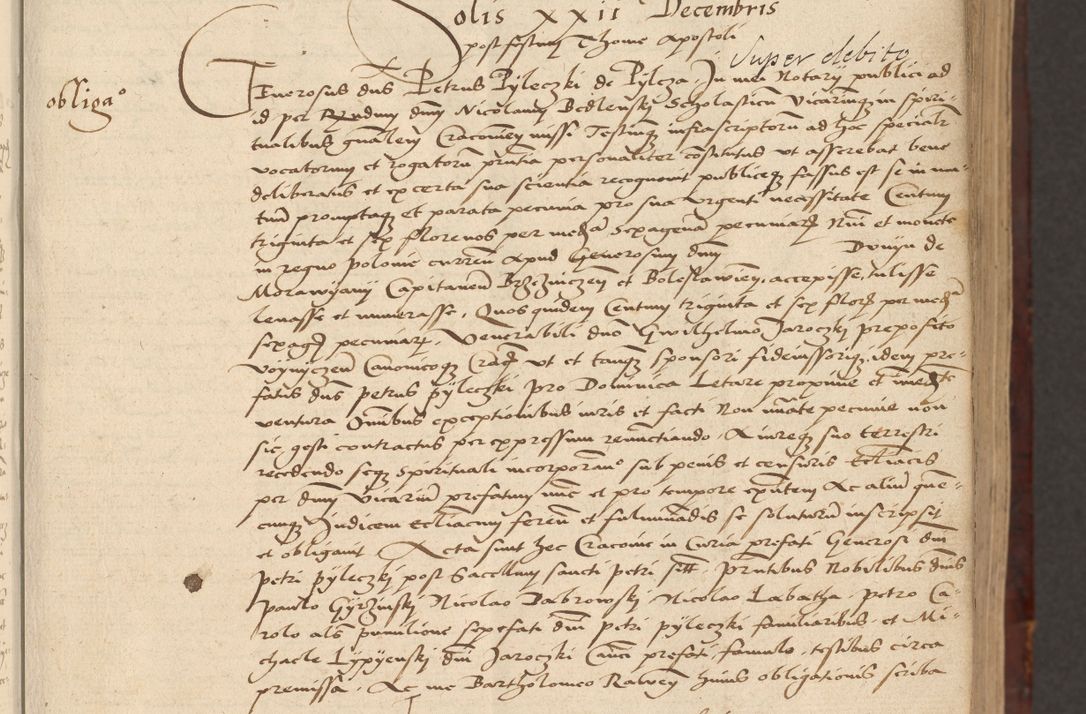 Solis XXII Decembris
post festum Thome Apostoli
Super debito
obliga°
Generosus dns Petrus Pyleczki de Pylcza. In mea Notarij publici ad
id per Rndum dnm Nicolaum Bedlenskj Scholasticu Vicariumq in spiri-
tualibus gnalem Cracovien missi Testiumq infrascriptoru ad hoc specialr
vocatorum et rogatoru pntia personaliter constitutus ut asserebat bene
deliberatus et ex certa sua scientia recognovit publiceq fassus est se in mu-
tuu promptaq et parata pecunia pro sua urgenti necessitate Centum
triginta et sex florenos per meda sexagena pecuniaru Nri et monete
in regno Polonie curren apud Generosum dnm Dunyn de
Morawyany Capitaneu Brzezinczen et Boleslawien, accepisse, tulisse
levasse et numerasse. Quos quidem Centum triginta et sex flor per meda
sexag pecuniaru. Venerabili dno Gwilhelmo Jaroczkj preposito
Voyniczen Canonicoq Crac ut et tanq sponsori fideiussoriq, idem pre-
fatus dns Petrus Pyleczkj pro Dominica Letare proxime et imedte
ventura Omnibus exceptionibus iuris et facti Non nuate pecunie non
sic gesti contractus per expressum renuctiando. A iureq suo terrestri
recedendo seq spirituali incorporan° sub penis et censuris Eccliacis
per dnm Vicariu prefatum nunc et pro tempore existen Ac aliu quen-
cunq Judicem Eccliacum feren et fulminadis se soluturu inscripsit
et obligavit. Acta sunt hec Cracovie in Curia prefati Generosi dni
Petri Pyleczkj post Sacellum sancti Petri sitt. Pntibus Nobilibus dnis
Paulo Gyrzinskj Nicolao Dabrowskj Nicolao Labatha. Petro Ca-
rolo als pumilione sepefati dni Petri Pyleczkj familiaribus. et Mi-
chaele Lypyenskj dni Jaroczkj Canci prefati, famulo. testibus circa
premissa. Ac me Bartholomeo Rawen huius obligationis scriba